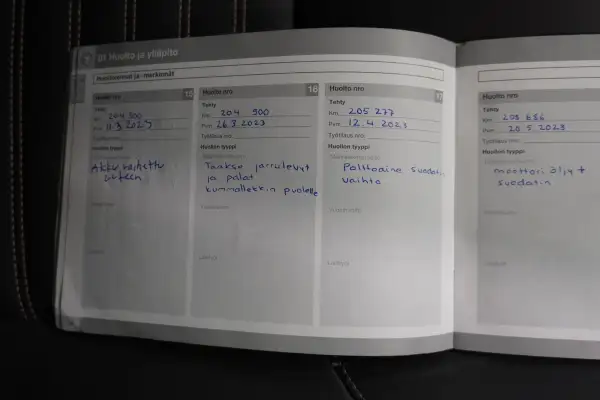 01 Huolto ja ylläpito
Huoltoleimat ja -merkinnät
Huolto nro 15
Tehty
Km 204 300
Pvm 11.3.2023
Työtilaus nro
Huollon tyyppi
Akku vaihettu
uuteen
Huolto nro 16
Tehty
Km 204 900
Pvm 26.3.2023
Työtilaus nro
Huollon tyyppi
Taakse jarrulevyt
ja palat
kummallekkin puolelle
Huolto nro 17
Tehty
Km 205 277
Pvm 12.4.2023
Työtilaus nro
Huollon tyyppi
Polttoaine suodatin
vaihto
Huolto nro
Tehty
Km 208 686
Pvm 20.5.2023
Työtilaus nro
Huollon tyyppi
moottori öljy +
suodatin